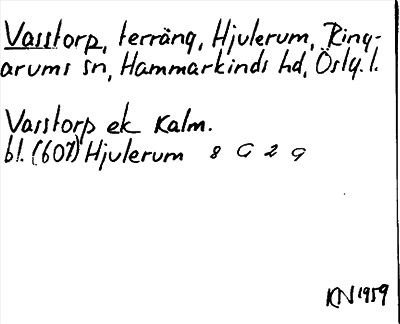 Vasstorp, terräng, Hjulerum, Ring-
arums sn, Hammarkinds hd, Östg.l.
Vasstorp ek Kalm.
bl. (607) Hjulerum 8 G 2 g
KN 1959